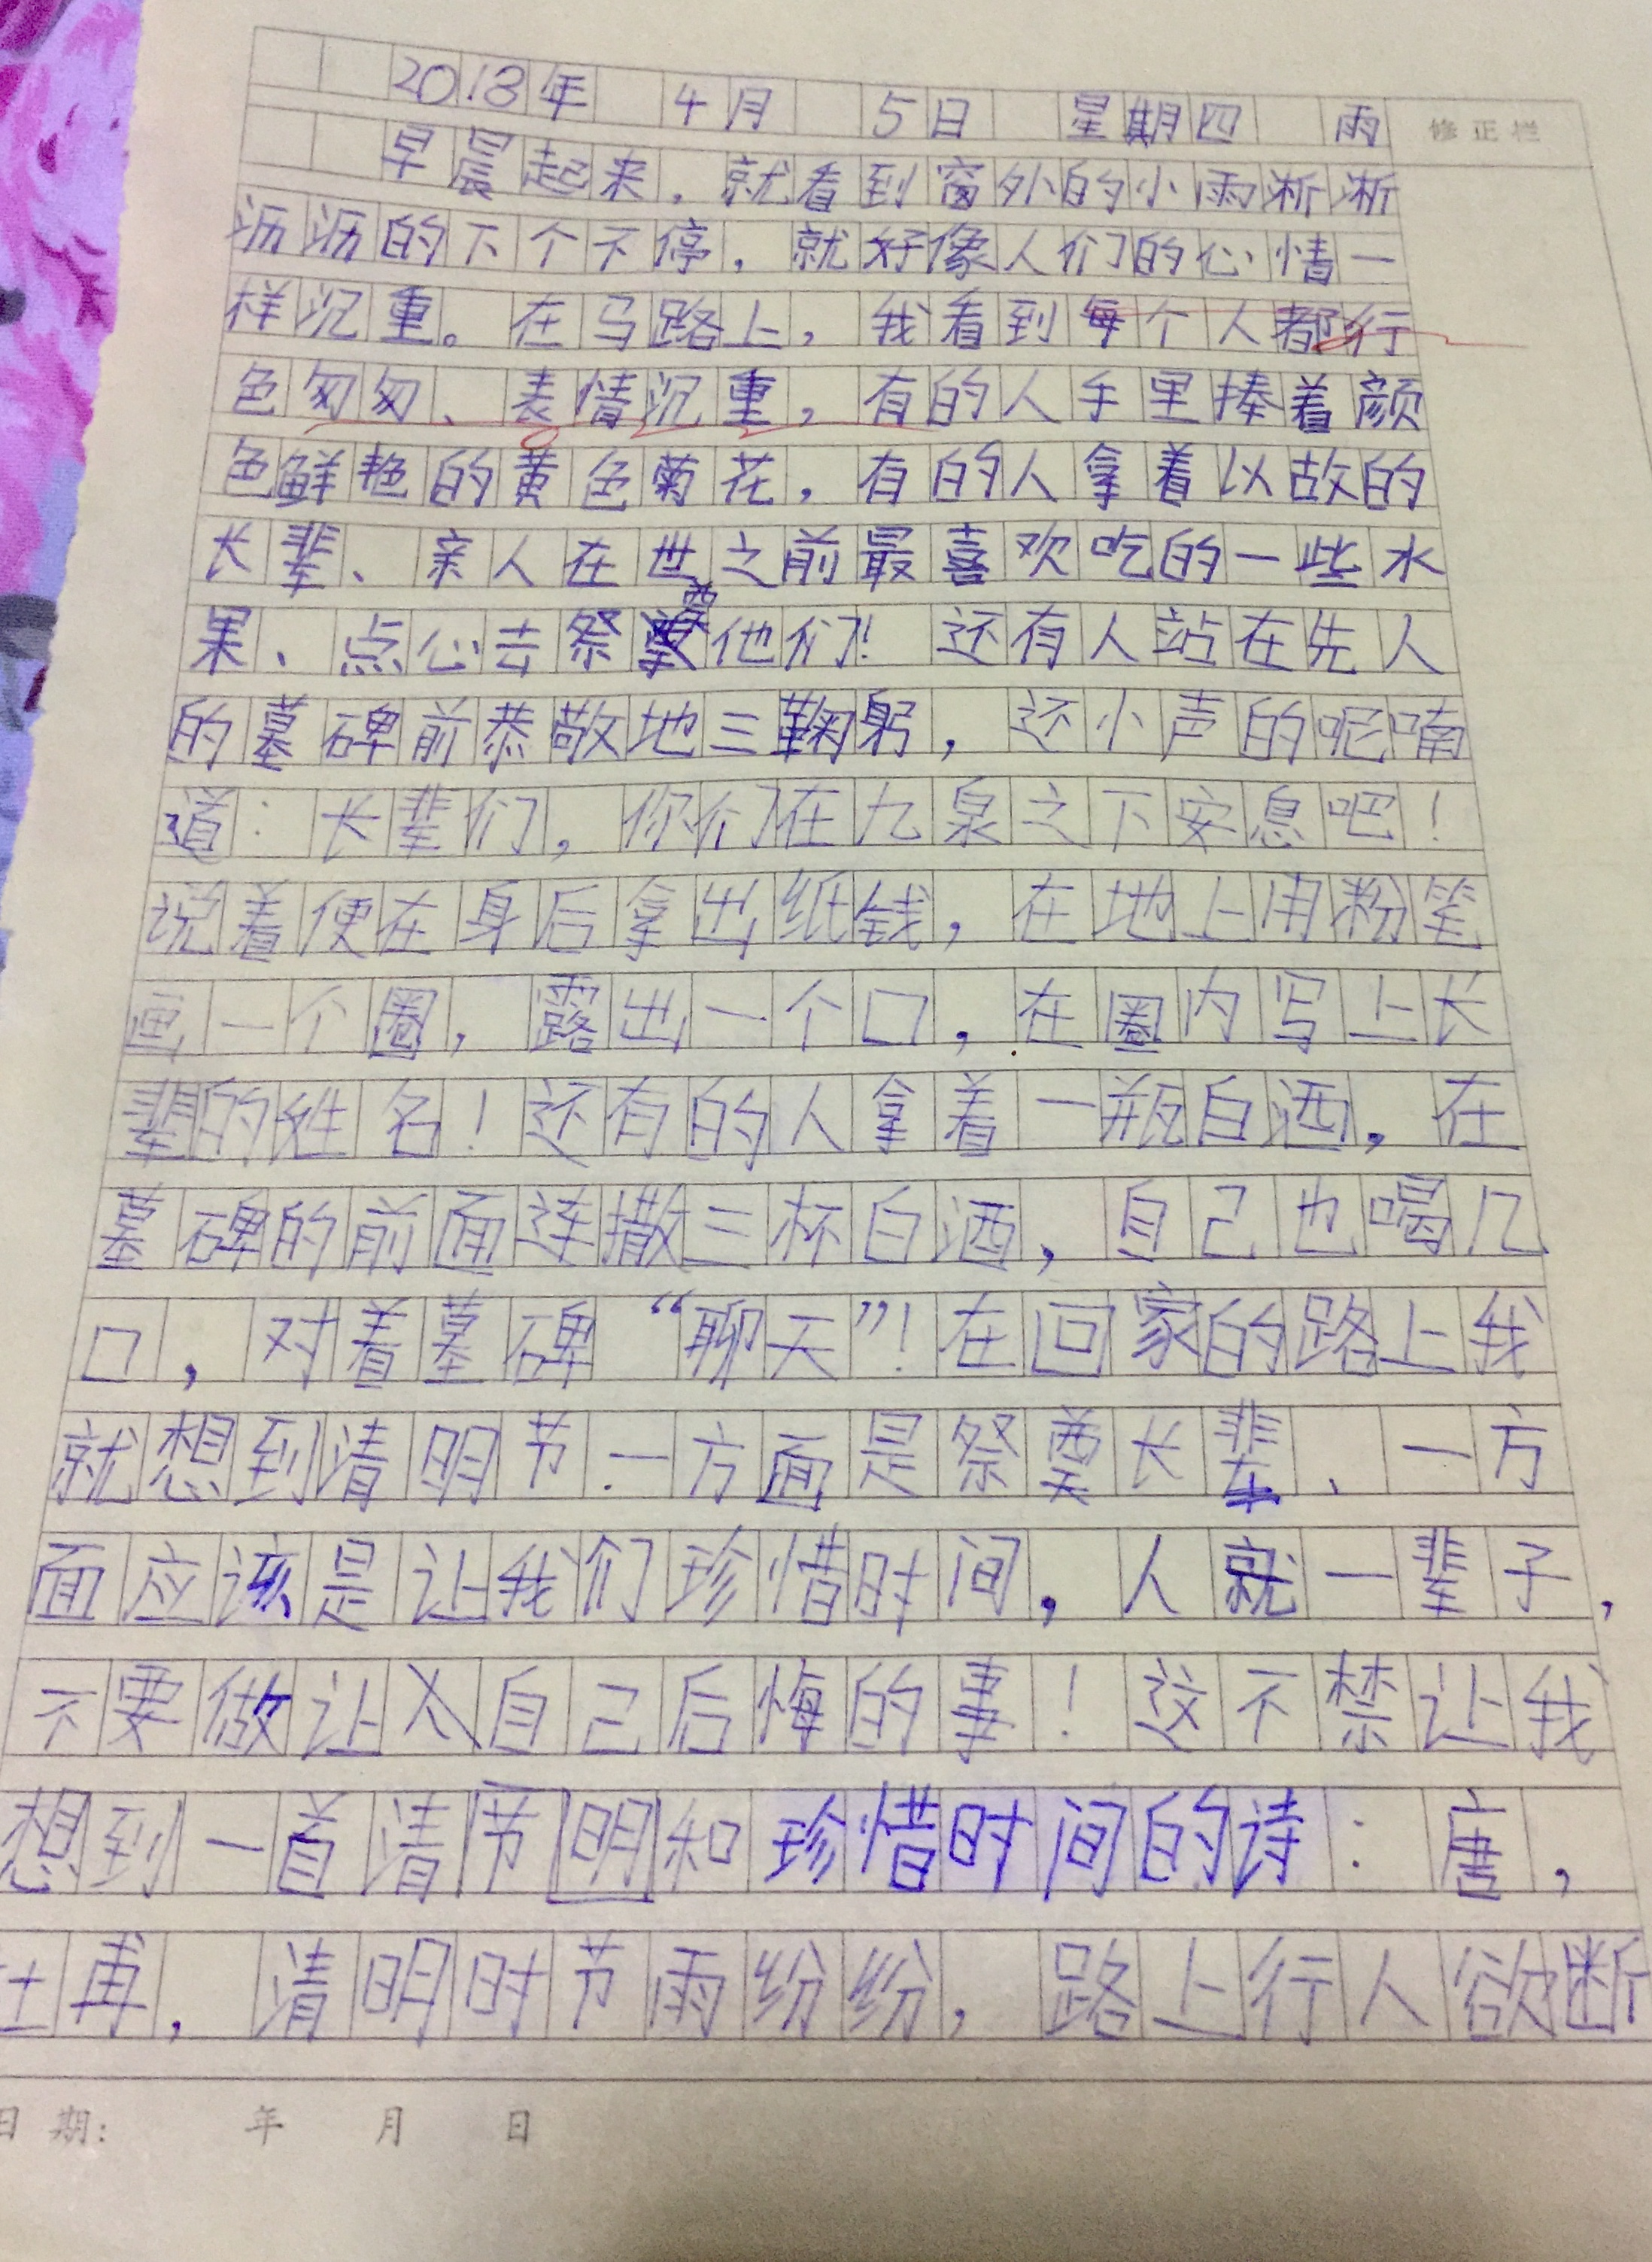 2018年 4月 5日 星期四 雨
修正栏
早晨起来，就看到窗外的小雨淅淅
沥沥的下个不停，就好像人们的心情一
样沉重。在马路上，我看到每个人都行
色匆匆、表情沉重，有的人手里捧着颜
色鲜艳的黄色菊花，有的人拿着以故的
长辈、亲人在世之前最喜欢吃的一些水
果、点心去祭奠他们！还有人站在先人
的墓碑前恭敬地三鞠躬，还小声的呢喃
道：长辈们，你们在九泉之下安息吧！
说着便在身后拿出纸钱，在地上用粉笔
画一个圈，露出一个口，在圈内写上长
辈的姓名！还有的人拿着一瓶白酒，在
墓碑的前面连撒三杯白酒，自己也喝几
口，对着墓碑“聊天”！在回家的路上我
就想到清明节一方面是祭奠长辈、一方
面应该是让我们珍惜时间，人就一辈子，
不要做让自己后悔的事！这不禁让我
想到一首清节明和珍惜时间的诗：唐，
杜甫，清明时节雨纷纷，路上行人欲断
日期： 年 月 日